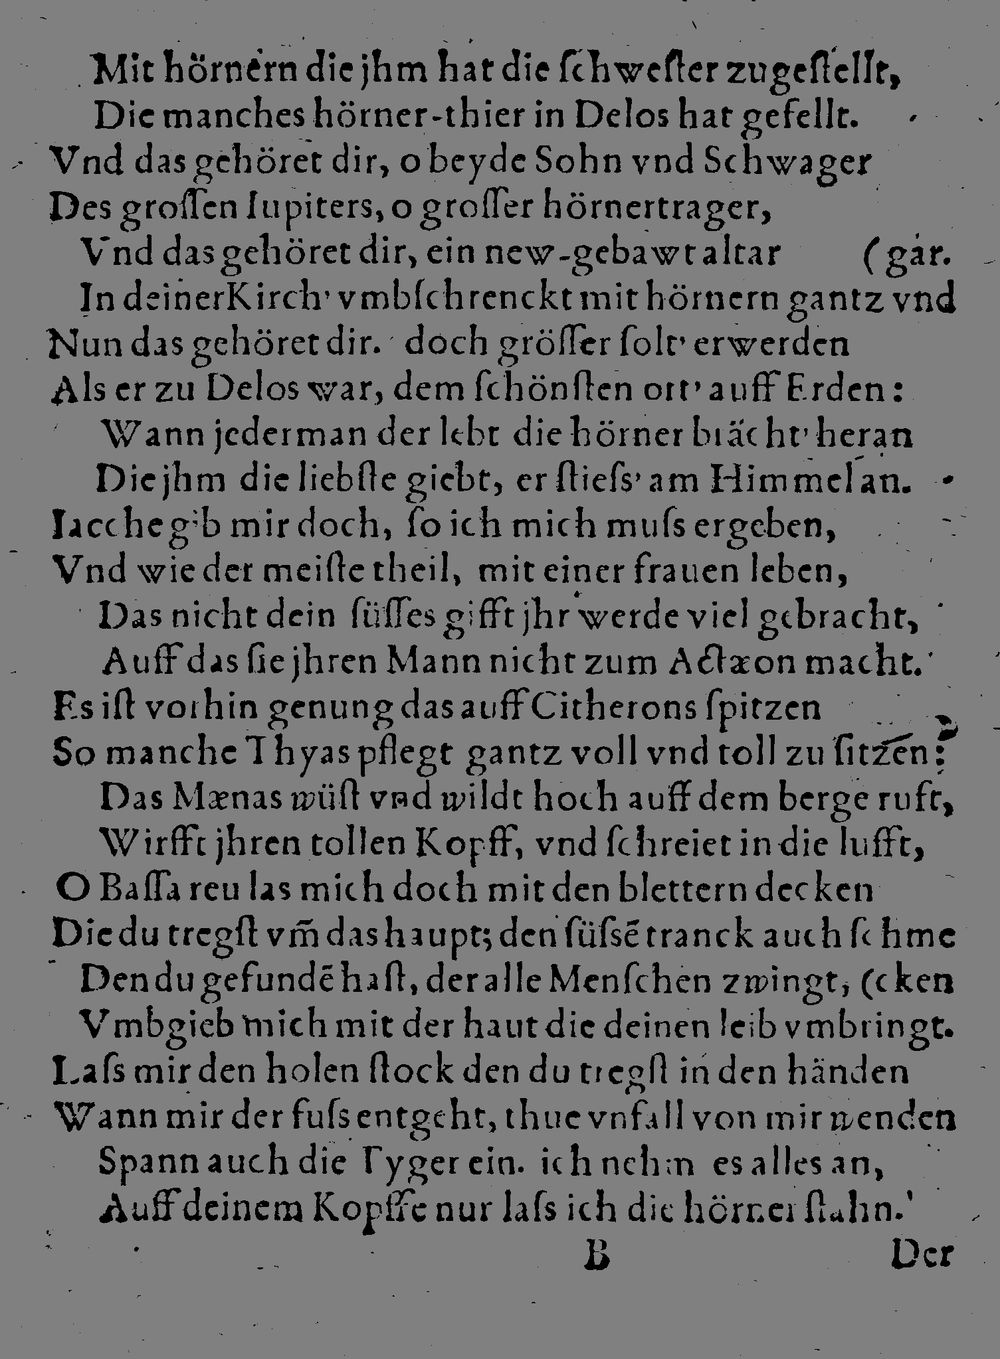 Mit hörnern die jhm hat die ſchweſter zugeſtellt,
Die manches hörner-thier in Delos hat gefellt.
Vnd das gehöret dir, o beyde Sohn vnd Schwager
Des groſſen Iupiters, o groſſer hörnertrager,
Vnd das gehöret dir, ein new-gebawt altar (gar.
In deiner Kirch' vmbſchrenckt mit hörnern gantz vnd
Nun das gehöret dir. doch gröſſer ſolt' er werden
Als er zu Delos war, dem ſchönſten ort' auff Erden:
Wann jederman der lebt die hörner brächt' heran
Die jhm die liebſte giebt, er ſtieſs' am Himmel an.
Iacche gib mir doch, ſo ich mich muſs ergeben,
Vnd wie der meiſte theil, mit einer frauen leben,
Das nicht dein ſüſſes gifft jhr werde viel gebracht,
Auff das ſie jhren Mann nicht zum Actæon macht.
Es iſt vorhin genung das auff Citherons ſpitzen
So manche Thyas pflegt gantz voll vnd toll zu ſitzen:
Das Mænas wüſt vnd wildt hoch auff dem berge ruft,
Wirfft jhren tollen Kopff, vnd ſchreiet in die lufft,
O Baſſareu las mich doch mit den blettern decken
Die du tregſt vm̃ das haupt; den ſüſsē tranck auch ſchme
Den du gefundē haſt, der alle Menſchen zwingt, (cken
Vmbgieb mich mit der haut die deinen leib vmbringt.
Laſs mir den holen ſtock den du tregſt in den händen
Wann mir der fuſs entgeht, thue vnfall von mir wenden
Spann auch die Tyger ein. ich nehm es alles an,
Auff deinem Kopffe nur laſs ich die hörner ſtahn.
B Der